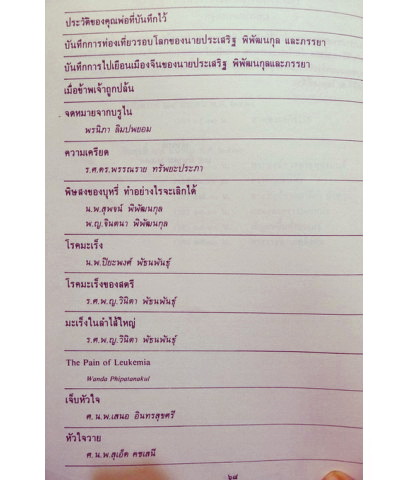 ประวัติของคุณพ่อที่บันทึกไว้
บันทึกการท่องเที่ยวรอบโลกของนายประเสริฐ พิพัฒนกุล และภรรยา
บันทึกการไปเยือนเมืองจีนของนายประเสริฐ พิพัฒนกุลและภรรยา
เมื่อข้าพเจ้าถูกปล้น
จดหมายจากบรูไน
พรนิภา ลิมปพยอม
ความเครียด
ร.ศ.ดร.พรรณราย ทรัพยะประภา
พิษสงของบุหรี่ ทำอย่างไรจะเลิกได้
น.พ.สุพจน์ พิพัฒนกุล
พ.ญ.จินตนา พิพัฒนกุล
โรคมะเร็ง
น.พ.ปิยะพงศ์ พัธนพันธุ์
โรคมะเร็งของสตรี
ร.ศ.พ.ญ.วินิตา พัธนพันธุ์
มะเร็งในลำไส้ใหญ่
ร.ศ.พ.ญ.วินิตา พัธนพันธุ์
The Pain of Leukemia
Wanda Phipatanakul
เจ็บหัวใจ
ศ.น.พ.เสนอ อินทรสุขศรี
หัวใจวาย
ศ.น.พ.สุเอ็ด คชเสนี